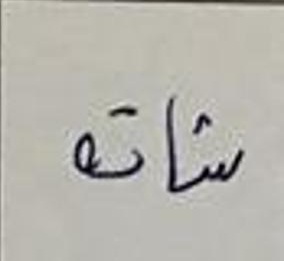 شاته